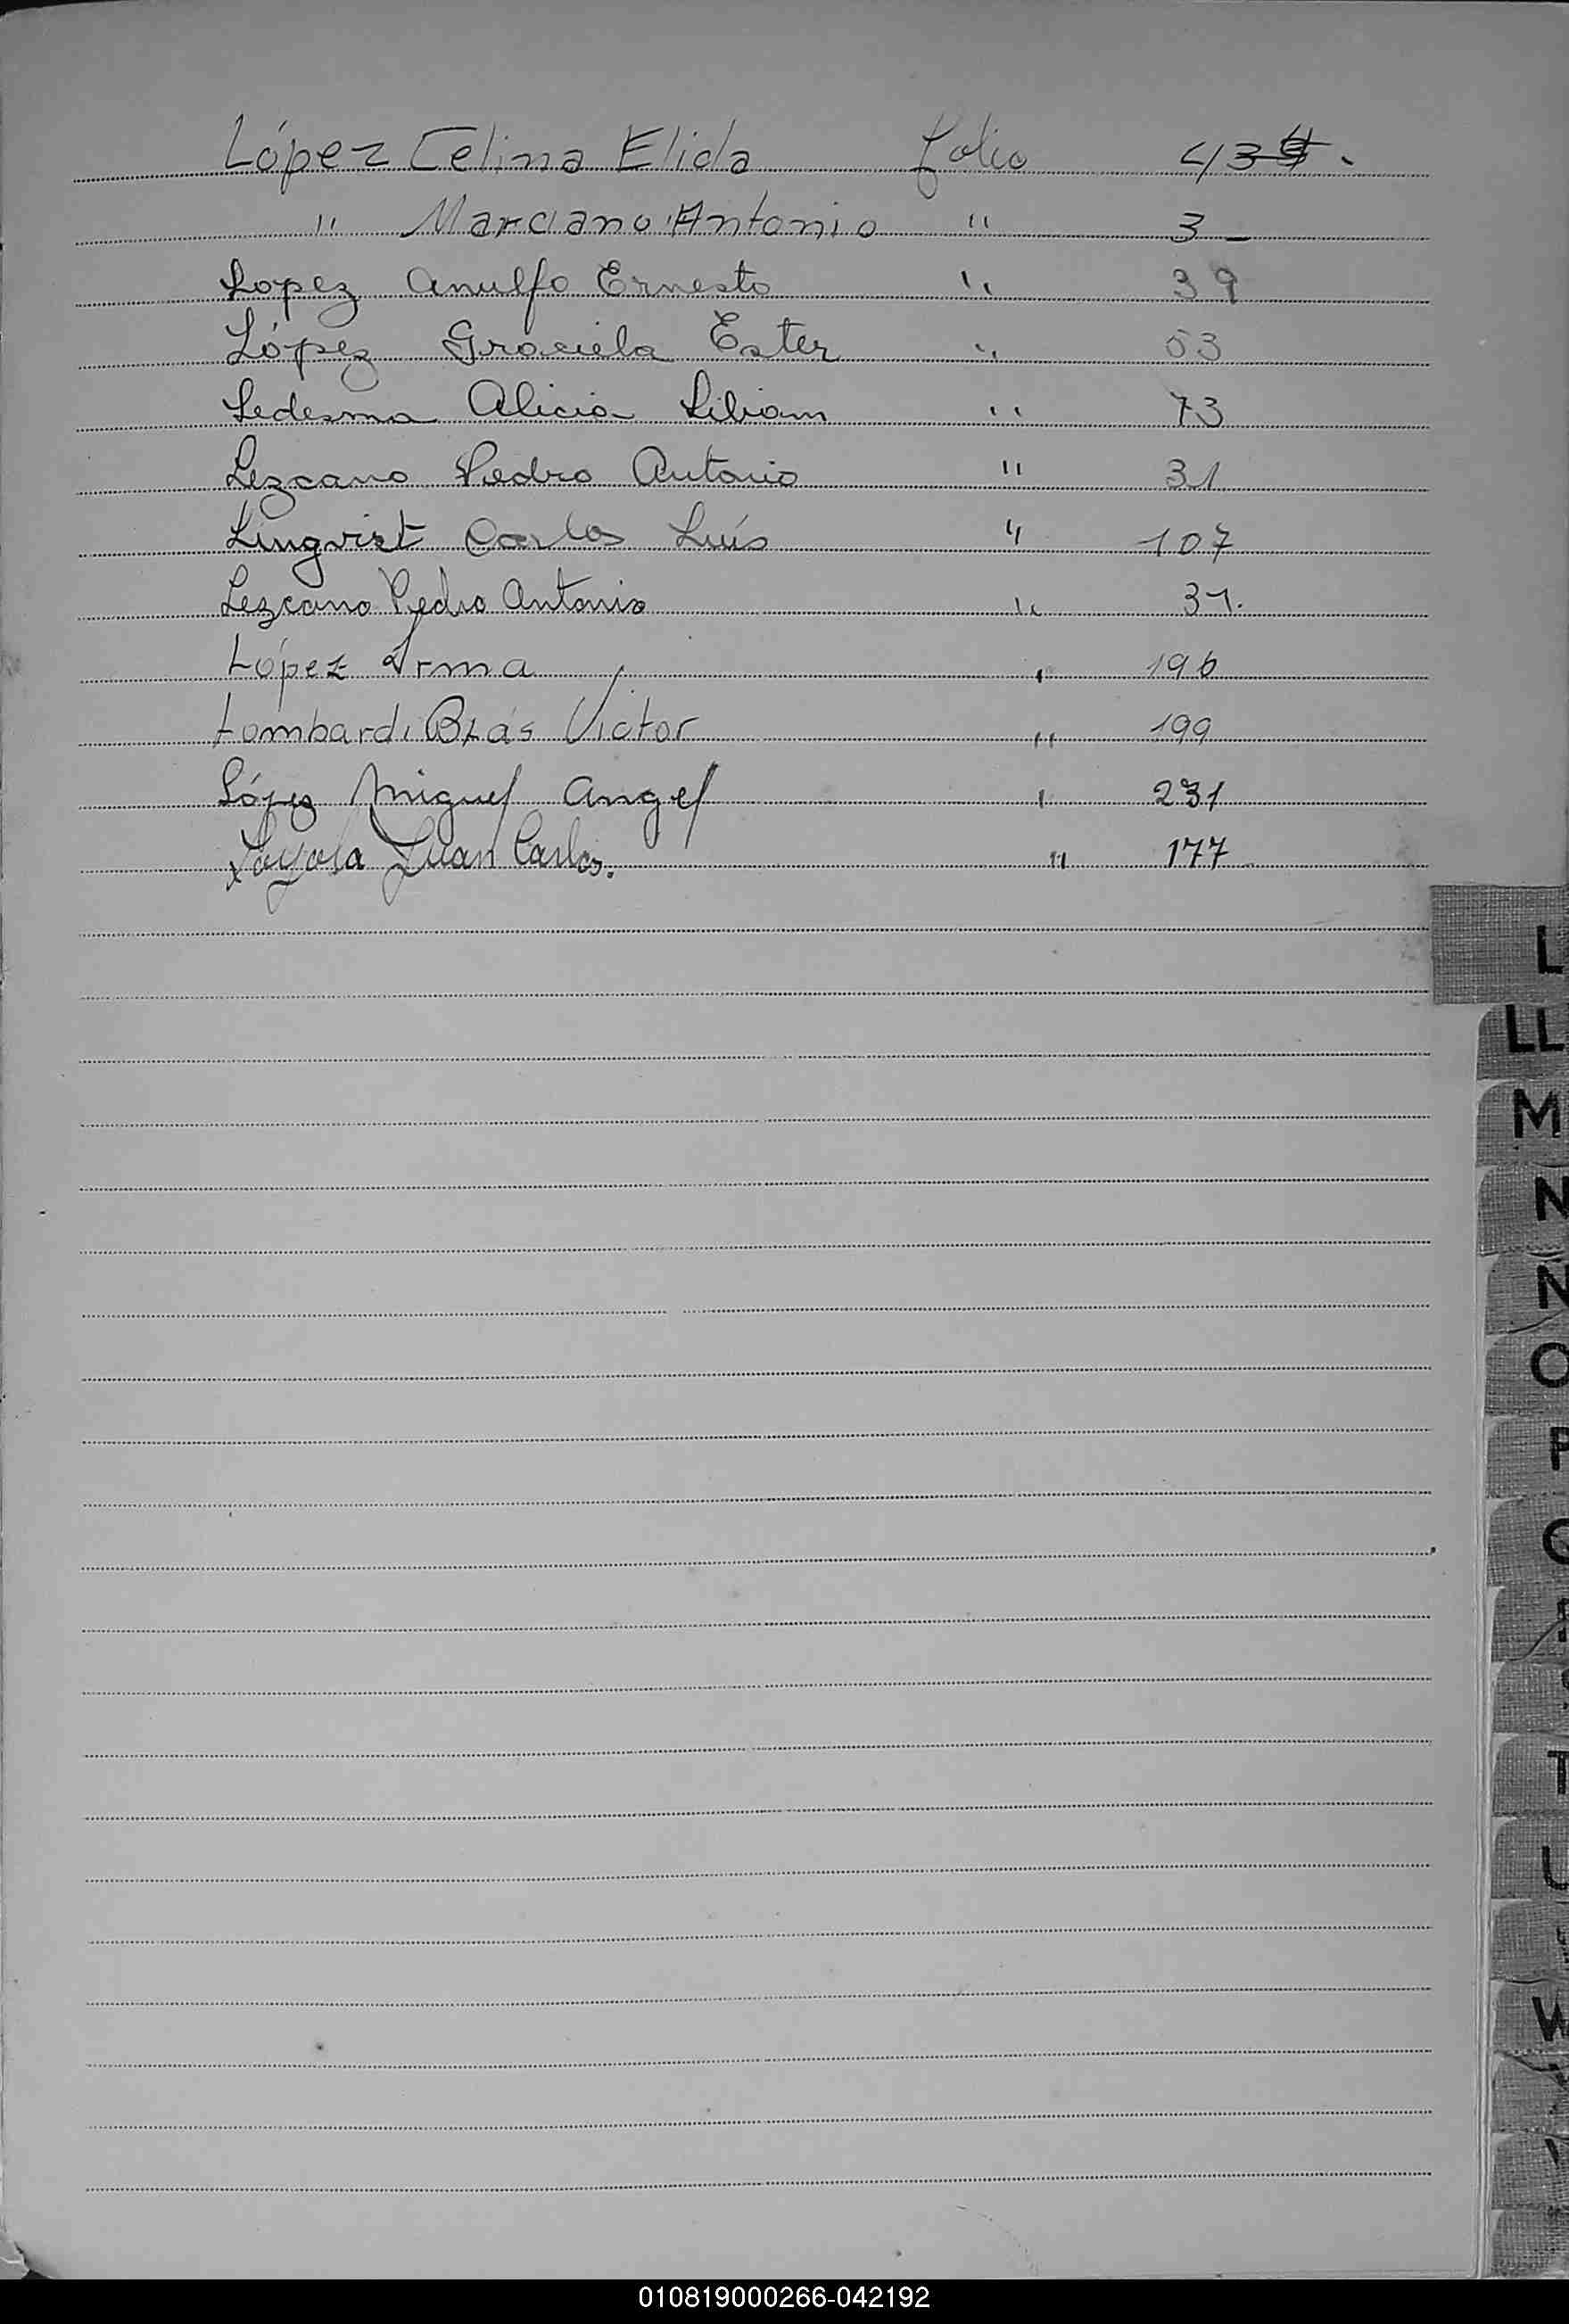 López Celina Elida folio 43
" Marciano Antonio " 3 -
Lopez Arnulfo Ernesto " 39
López Graciela Ester " 53
Ledesma Alicia Liliam " 73
Lezcano Pedro Antonio " 31
Lingvist Carlos Luís " 107
Lezcano Pedro Antonio " 31.
López Irma " 196
Lombardi Blás Victor " 199
López Miguel Angel " 231
Loyola Juan Carlos. " 177
L
LL
M
N
Ñ
O
P
Q
R
S
T
U
W
010819000266-042192